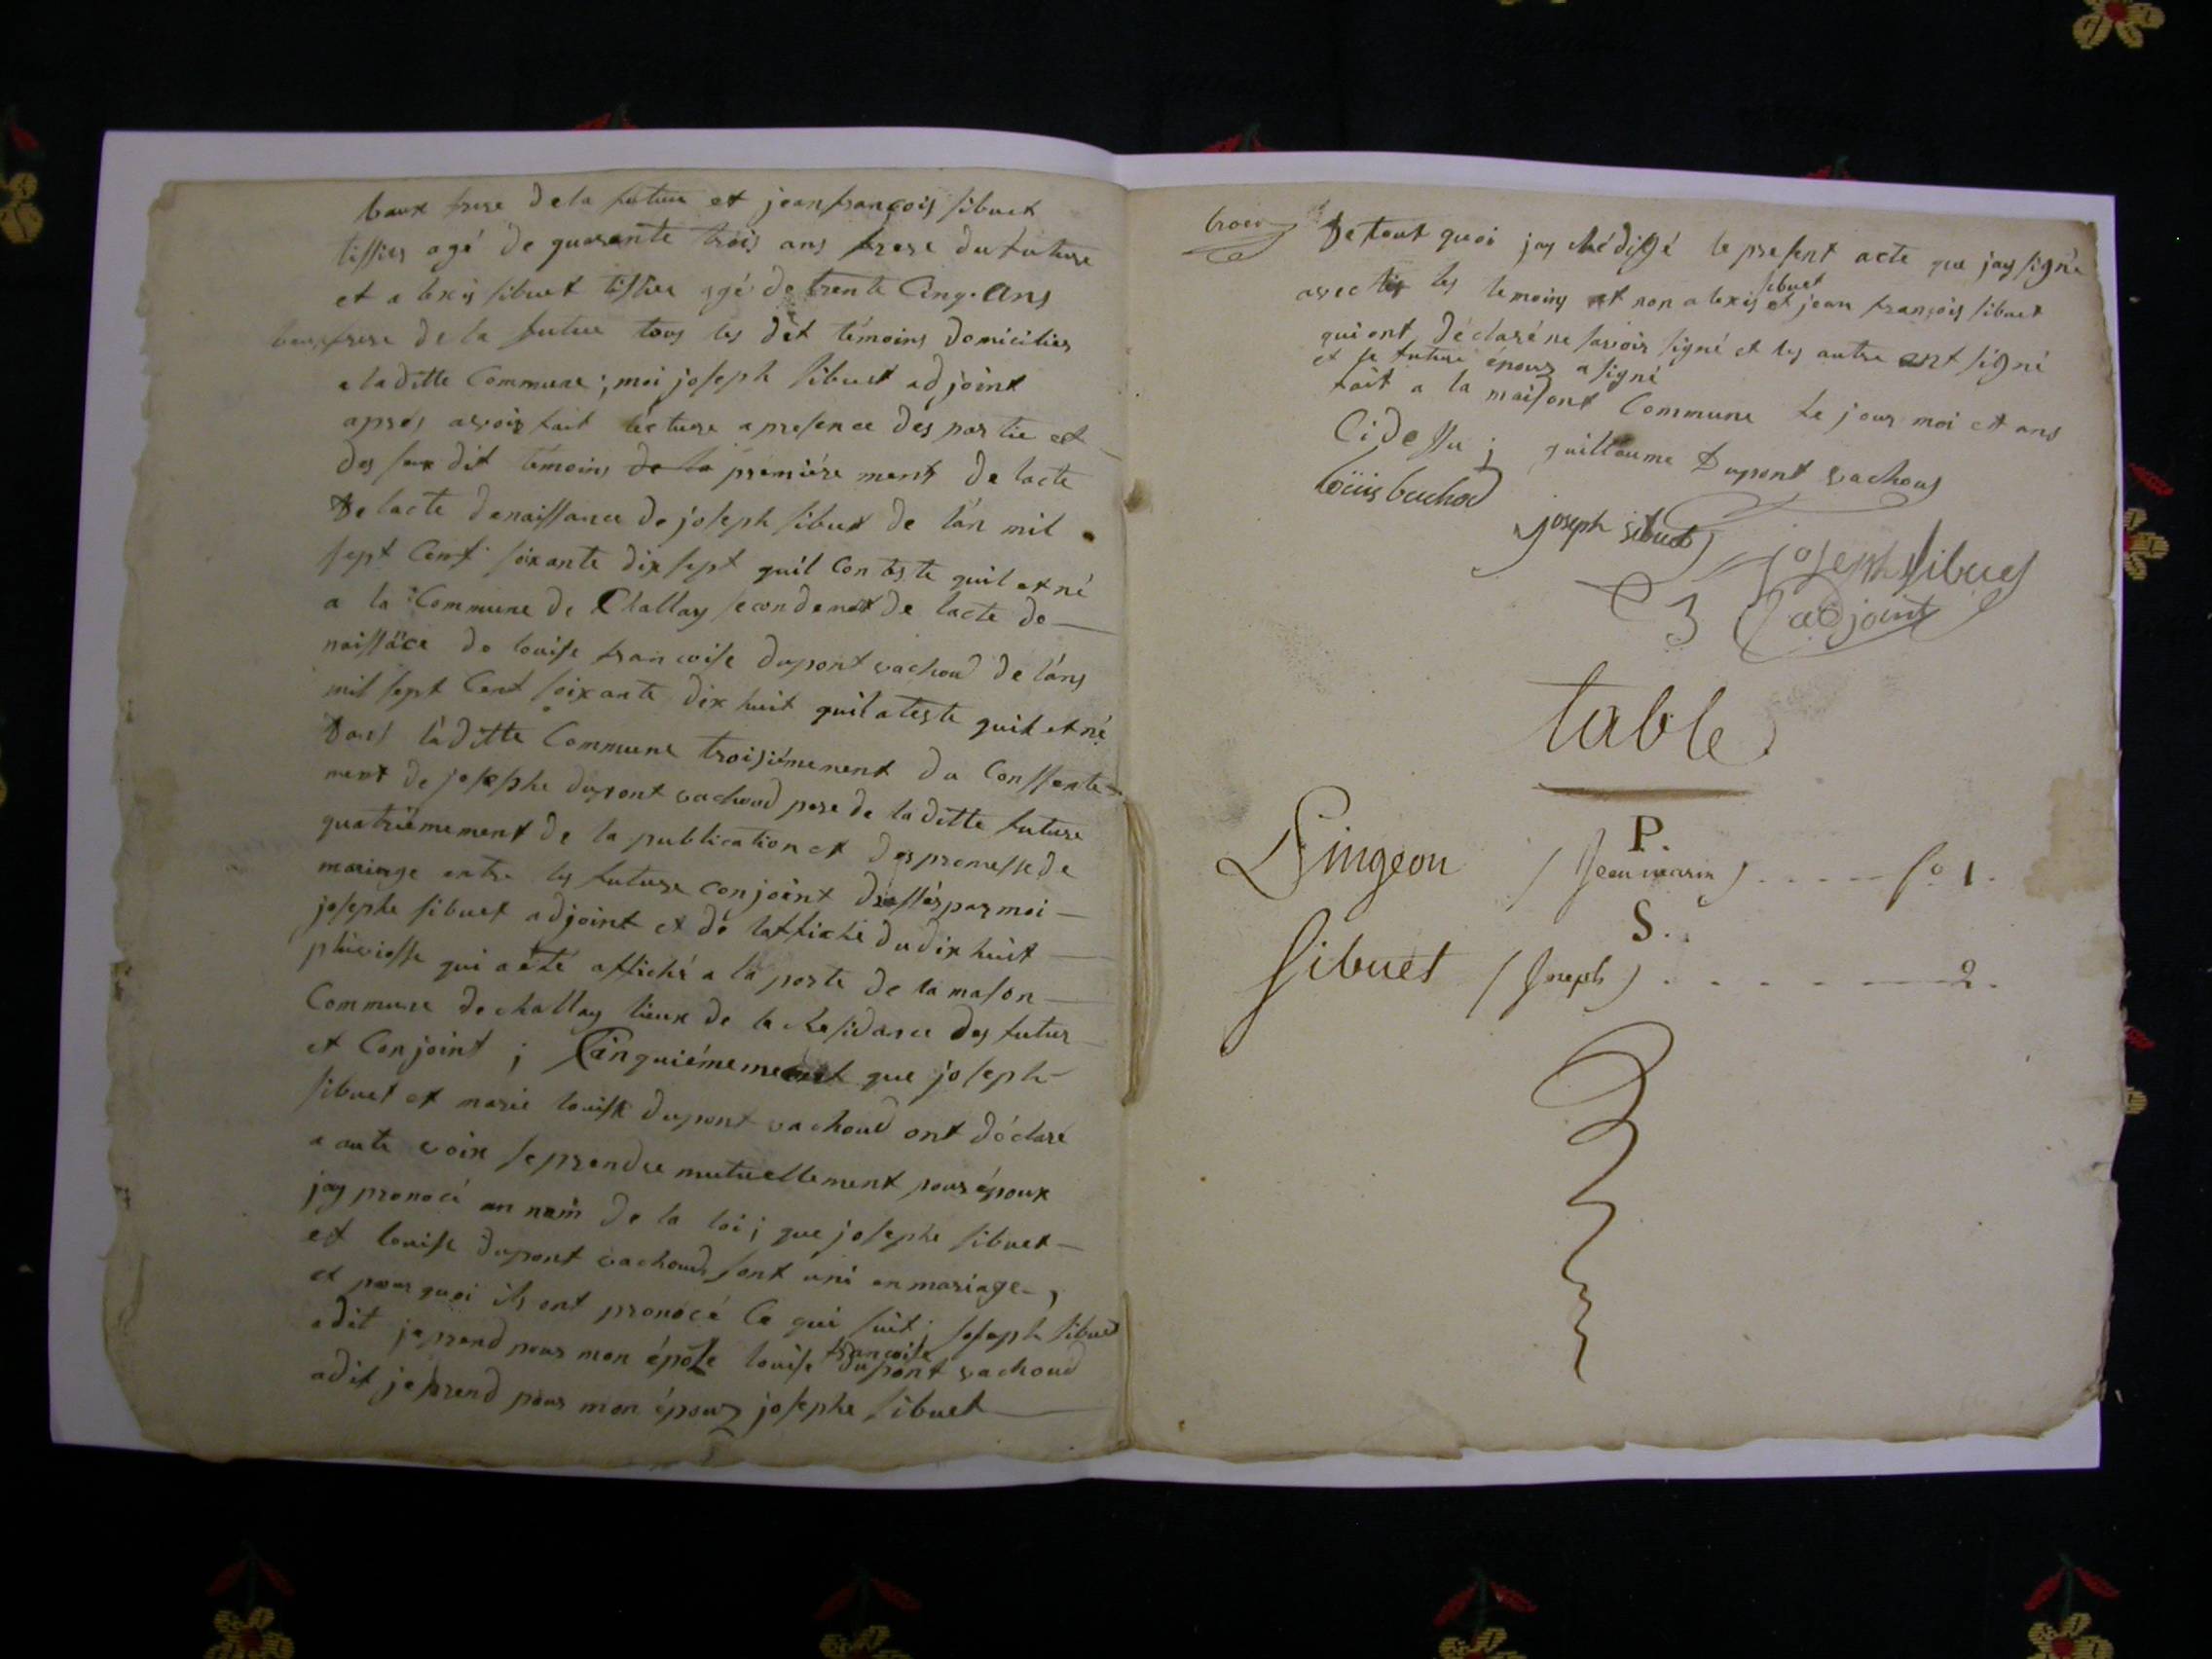 baux frere dela future et jeanfrançois sibuet
tissier agé de quarante trois ans frere du future
et alexis sibuet tissier agé de trente Cinq. ans
baux frere de la future tous les dit témoins domicilies
a laditte Commune; moi joseph sibuet adjoint
aprés avoir fait lécture apresence dés partie et
des susdit témoins de la premiére ment de lacte
De lacte denaissance de joseph sibuet de lán mil
sept Cent soixante dixsept quil conteste quil et né
a la Commune de Challay secondemet de lacte de
naissäce de louise francoise dupont vachoud de láns
mil sept Cent soixante dix huit quil ateste quil et né
dans láditte Commune troisiémement du Conssente
ment de josephe dupont vachoud pere de laditte future
quatriémement de la publication et des promesse de
mariage entre les future conjoint dréssés par moi
josephe sibuet adjoint et dé laffiche du dix huit
pluviosse qui aété affiché a la porte de la mason
Commune de challay lieux de la Residance des futur
et Conjoint; Cinquiémement que joseph
sibuet et marie louise dupont vachoud ont déclaré
a aute voix se prendre mutuellement pour époux
jay pronocé au nom de la loi; que josephe sibuet
et louise dupont vachoud sont uni en mariage,
et pour quoi ils ont pronocé Ce qui suit; joseph sibuet
adit je prend pour mon épose louise francoise dupont vachoud
adit je prend pour mon épouz josephe sibuet
De tout quoi jay Rédigé le present acte que jay signé
avec les temoins et non alexis sibuet et jean françois sibuet
qui ont déclaré ne savoir signé et les autre ont signé
et le future épouz a signé
fait a la maisont Commune le jour moi et ans
Ci dessu; guillaume Dupont vachoud
loüis bachod
joseph sibuet
joseph sibuet
adjoint
table
P.
Pingeon (Jean marin) . . . . . fo. 1.
S.
Sibuet (Joseph) . . . . . . . 2.